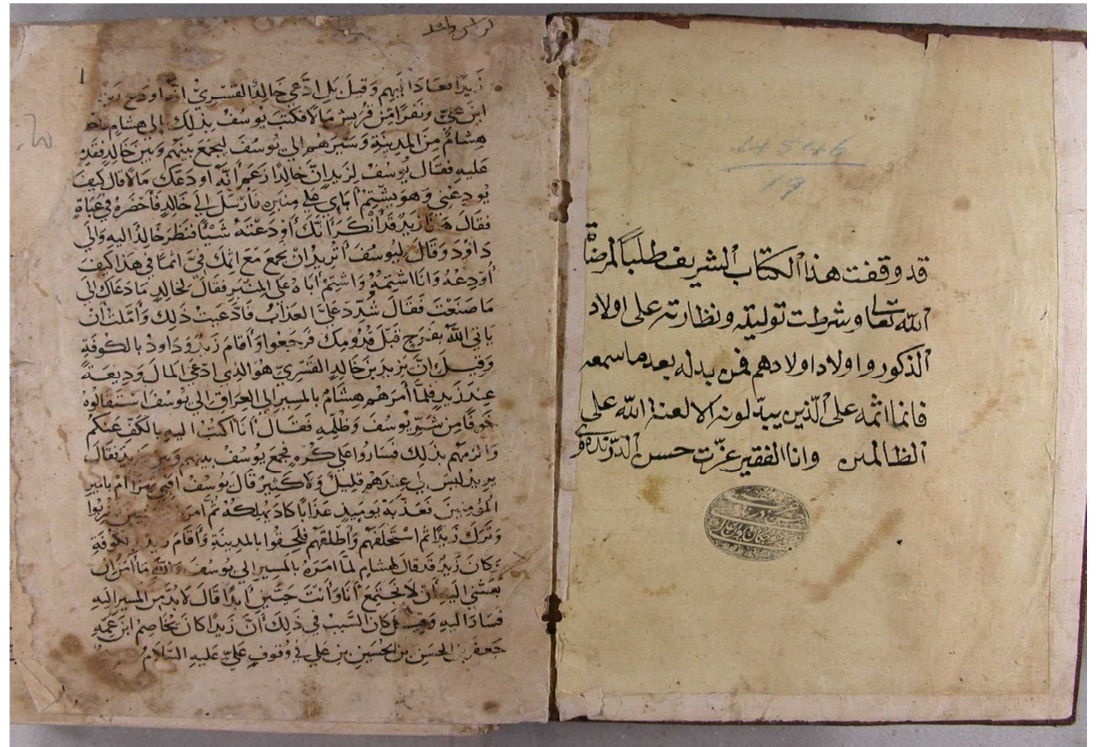 قد وقفت هذا الكتاب الشريف طلبا لمرضات
الله تعالى وشرطت توليته ونظارته على اولاد
الذكور واولاد اولادهم فمن بدله بعد ما سمعه
فانما اثمه على الذين يبدلونه الا لعنة الله على
الظالمين وانا الفقير عزت حسن الدرنده وى
زيدا فعاد اليهم وقيل بل ادعى خالد القسري انه اودع زيد
ابن علي ونفرا من قريش مالا فكتب يوسف بذلك الى هشام
هشام من المدينة وسيرهم الى يوسف ليجمع بينهم وبين خالد فقدم
عليه فقال يوسف لزيد ان خالدا زعم انه اودعك مالا قال كيف
يودعني وهو يشتم آبائي على منبره فارسل الى خالد فاحضره في عباة
فقال هذا زيد قد انكر انك اودعته شيئا فنظر خالد اليه والى
داود وقال ليوسف اتريد ان تجمع مع اثمك في اثما في هذا كيف
اودعه وانا اشتمه واشتم اباه على المنبر فقال لخالد ما دعاك الى
ما صنعت فقال شدد علي العذاب فادعيت ذلك وأملت أن
ياتي الله بفرج قبل قدومك فرجعوا وأقام زيد وداود بالكوفة
وقيل ان يزيد بن خالد القسري هو الذي ادعى المال وديعة
عند زيد فلما أمرهم هشام بالمسير الى العراق الى يوسف استقالوه
خوفا من شر يوسف وظلمه فقال أنا اكتب اليه بالكف عنكم
والزمهم بذلك فساروا على كره فجمع يوسف بينهم وبين يزيد فقال
يزيد ليس لي عندهم قليل ولا كثير قال يوسف أفبي تهزأ ام بامير
المؤمنين فعذبه يومئذ عذابا كاد يهلكه ثم أمر فضربوا
وترك زيدا ثم استحلفهم وأطلقهم فلحقوا بالمدينة وأقام زيد بالكوفة
وكان زيد قد قال لهشام لما امره بالمسير الى يوسف والله ما آمن ان
بعثتني اليه أن لا نجتمع أنا وأنت حيين ابدا قال لا بد من المسير اليه
فسار اليه وقيل كان السبب في ذلك أن زيدا كان يخاصم ابن عمه
جعفر بن الحسن بن الحسين بن علي في وقوف علي عليه السلام